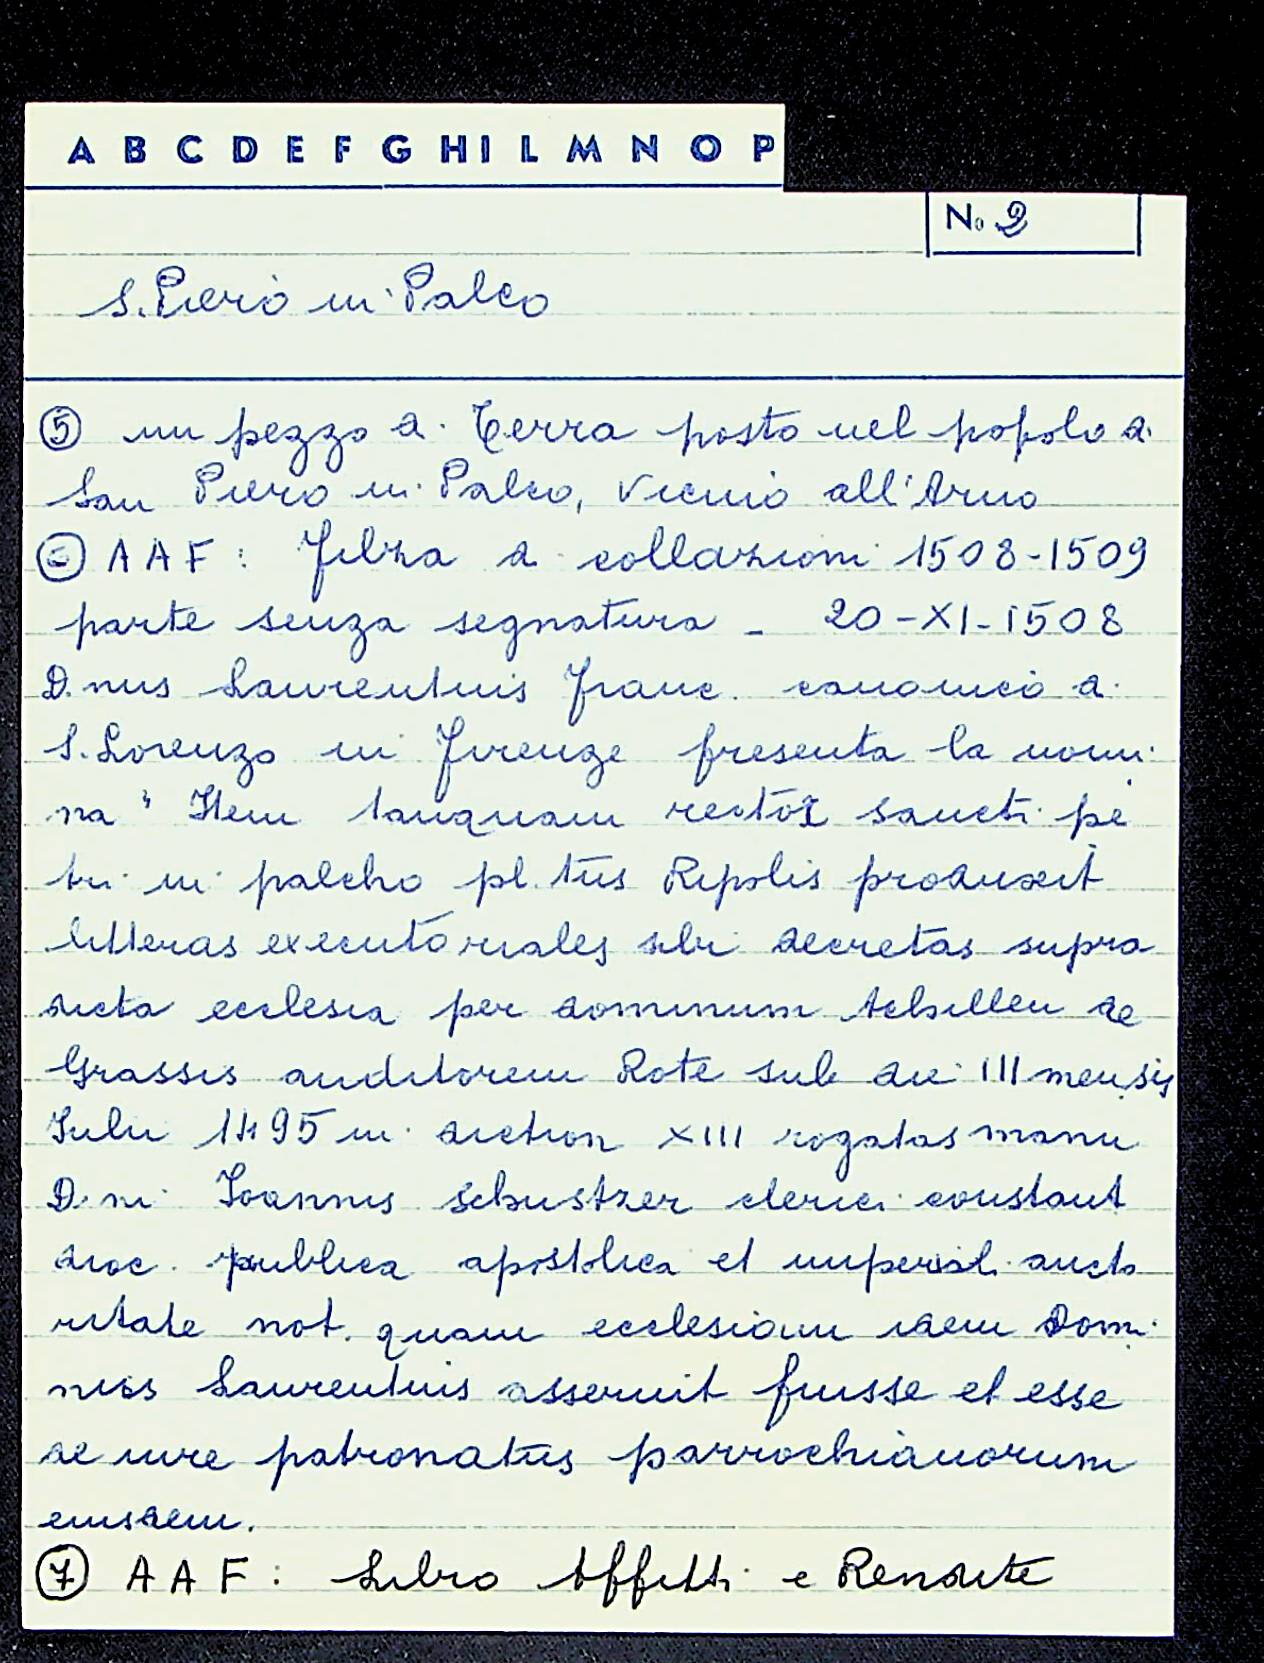 A B C D E F G H I L M N O P
No 2
S. Piero in Palco
⑤ un pezzo di Terra posto nel popolo di
San Piero in Palco, vicino all'Arno
⑥ AAF: Filza di collazioni 1508-1509
parte senza segnatura - 20-XI-1508
D.nus Laurentius Franc. canonico di
S. Lorenzo in Firenze presenta la nomi
na " Item tanquam rector sancti pe
tri in palcho pl.tus Ripolis produxit
litteras executoriales sibi decretas supra
dicta ecclesia per dominum Achillem de
Grassis auditorem Rote sub die III mensis
Iulii 1495 in diction XIII rogatas manu
D.ni Ioannis schustzer clerici constant
dioc. publica apostolica et imperial. aucto
ritate not. quam ecclesiam idem Domi
nus Laurentius asseruit fuisse et esse
de iure patronatus parrochianorum
eiusdem.
⑦ AAF: Libro Affitti e Rendite